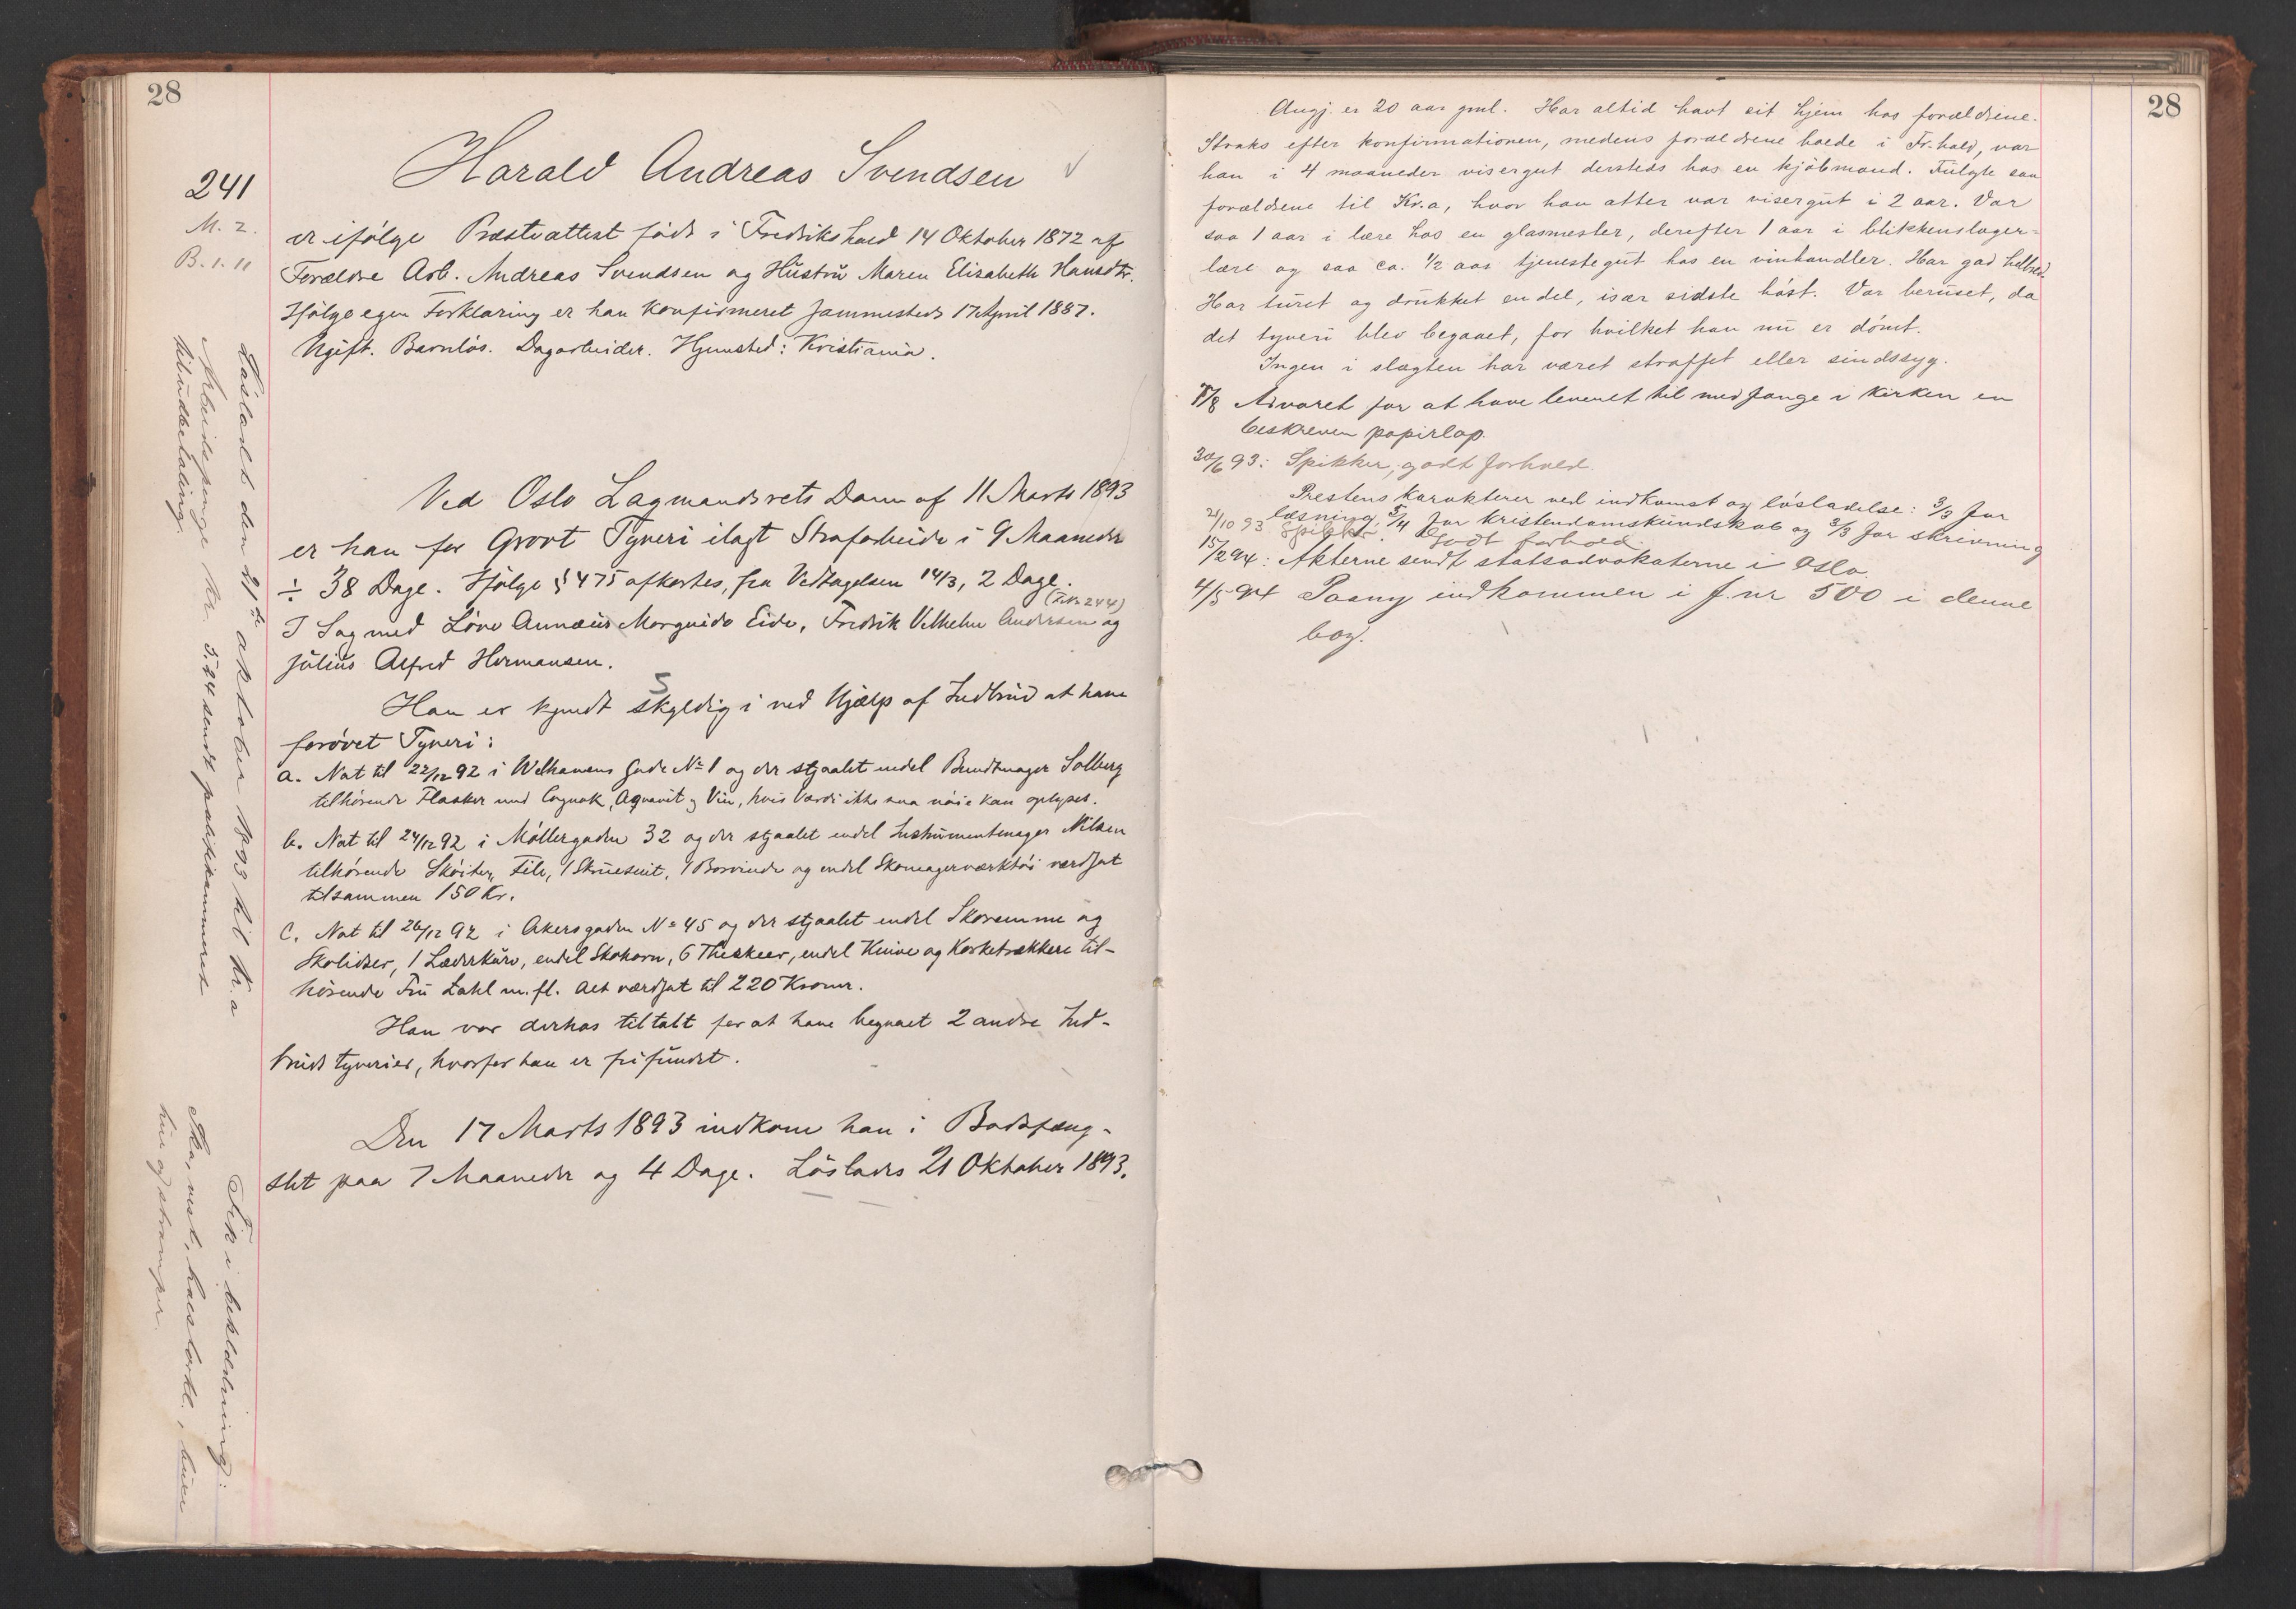 28
241
M. 2.
B. 1. 11
Harald Andreas Svendsen
er ifølge Præsteattest født i Fredrikshald 14 Oktober 1872 af
Forældre Arb. Andreas Svendsen og Hustru Maren Elisabeth Hansdtr.
Ifølge egen Forklaring er han konfirmeret sammesteds 17 April 1887.
Ugift. Barnløs. Dagarbeider. Hjemsted: Kristiania.
Ved Oslo Lagmandsrets Dom af 11 Marts 1893
er han for Grovt Tyveri ilagt Strafarbeide i 9 Maaneder
÷ 38 Dage. Ifølge § 475 afkortes, fra Vedtagelsen 14/3, 2 Dage.
(F.Nr 244)
I Sag med Løve Annæus Morgnido Eide, Fredrik Vilhelm Andersen og
Julius Alfred Hermansen.
Han er kjendt skyldig i ved Hjælp af Indbrud at have
forøvet Tyveri:
a. Nat til 22/12 92 i Welhavens Gade No 1 og der stjaalet endel Bundtmager Solberg
tilhørende Flasker med Cognak, Aqvavit og Vin, hvis Værdi ikke saa nøie kan oplyses.
b. Nat til 24/12 92 i Møllergaden 32 og der stjaalet endel Instrumentmager Nilsen
tilhørende Skøiter, File, 1 Skruesnit, 1 Borvinde og endel Skomagerværktøi værdsat
tilsammen 150 Kr.
c. Nat til 26/12 92 i Akersgaden No 45 og der stjaalet endel Skoremme og
Skolidser, 1 Læderkurv, endel Skohorn, 6 Theskeer, endel Knive og Korketrækkere til-
hørende Fru Dahl m. fl. Alt værdsat til 220 Kroner.
Han var derhos tiltalt for at have begaaet 2 andre Ind-
bruds tyverier, hvorfor han er frifundet.
Den 17 Marts 1893 indkom han i Bodsfæng-
slet paa 7 Maaneder og 4 Dage. Løslades 21 Oktober 1893.
Løsladt den 21de oktober 1893 til Kr.a
Arbeidspenge Kr. 5.24 sendt politikammeret
til udbetaling.
Fik i beklædning:
Sko, vest, halstørkl., buxer
hue og strømper.
28
Angj. er 20 aar gml. Har altid havt sit hjem hos forældrene.
Straks efter konfirmationen, medens forældrene boede i Fr.hald, var
han i 4 maaneder visergut dersteds hos en kjøbmand. Fulgte saa
forældrene til Kr.a, hvor han atter var visergut i 2 aar. Var
saa 1 aar i lære hos en glasmester, derefter 1 aar i blikkenslager-
lære og saa ca. 1/2 aar tjenestegut hos en vinhandler. Har god helbred.
Har turet og drukket en del, især sidste høst. Var beruset, da
det tyveri blev begaaet, for hvilket han nu er dømt.
Ingen i slægten har været straffet eller sindssyg.
7/8 Advaret for at have leveret til medfange i kirken en
beskreven papirlap.
30/6 93: Spikker, godt forhold.
Prestens karakterer ved indkomst og løsladelse: 3/3 for
læsning, 5/4 for kristendomskundskab og 3/3 for skrivning
21/10 93 Spikker. Godt forhold.
15/2 94: Akterne sendt statsadvokaterne i Oslo.
4/5 94 Paany indkommen i f. nr 500 i denne
bog.